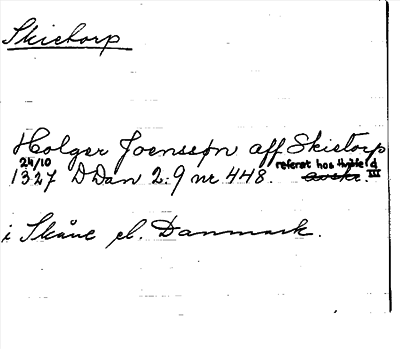 Skietorp
Holger Joenssøn aff Skietorp
24/10
1327 DDan 2:9 nr 448. referat hos Hvitfeld III
avskr.
i Skåne el. Danmark.